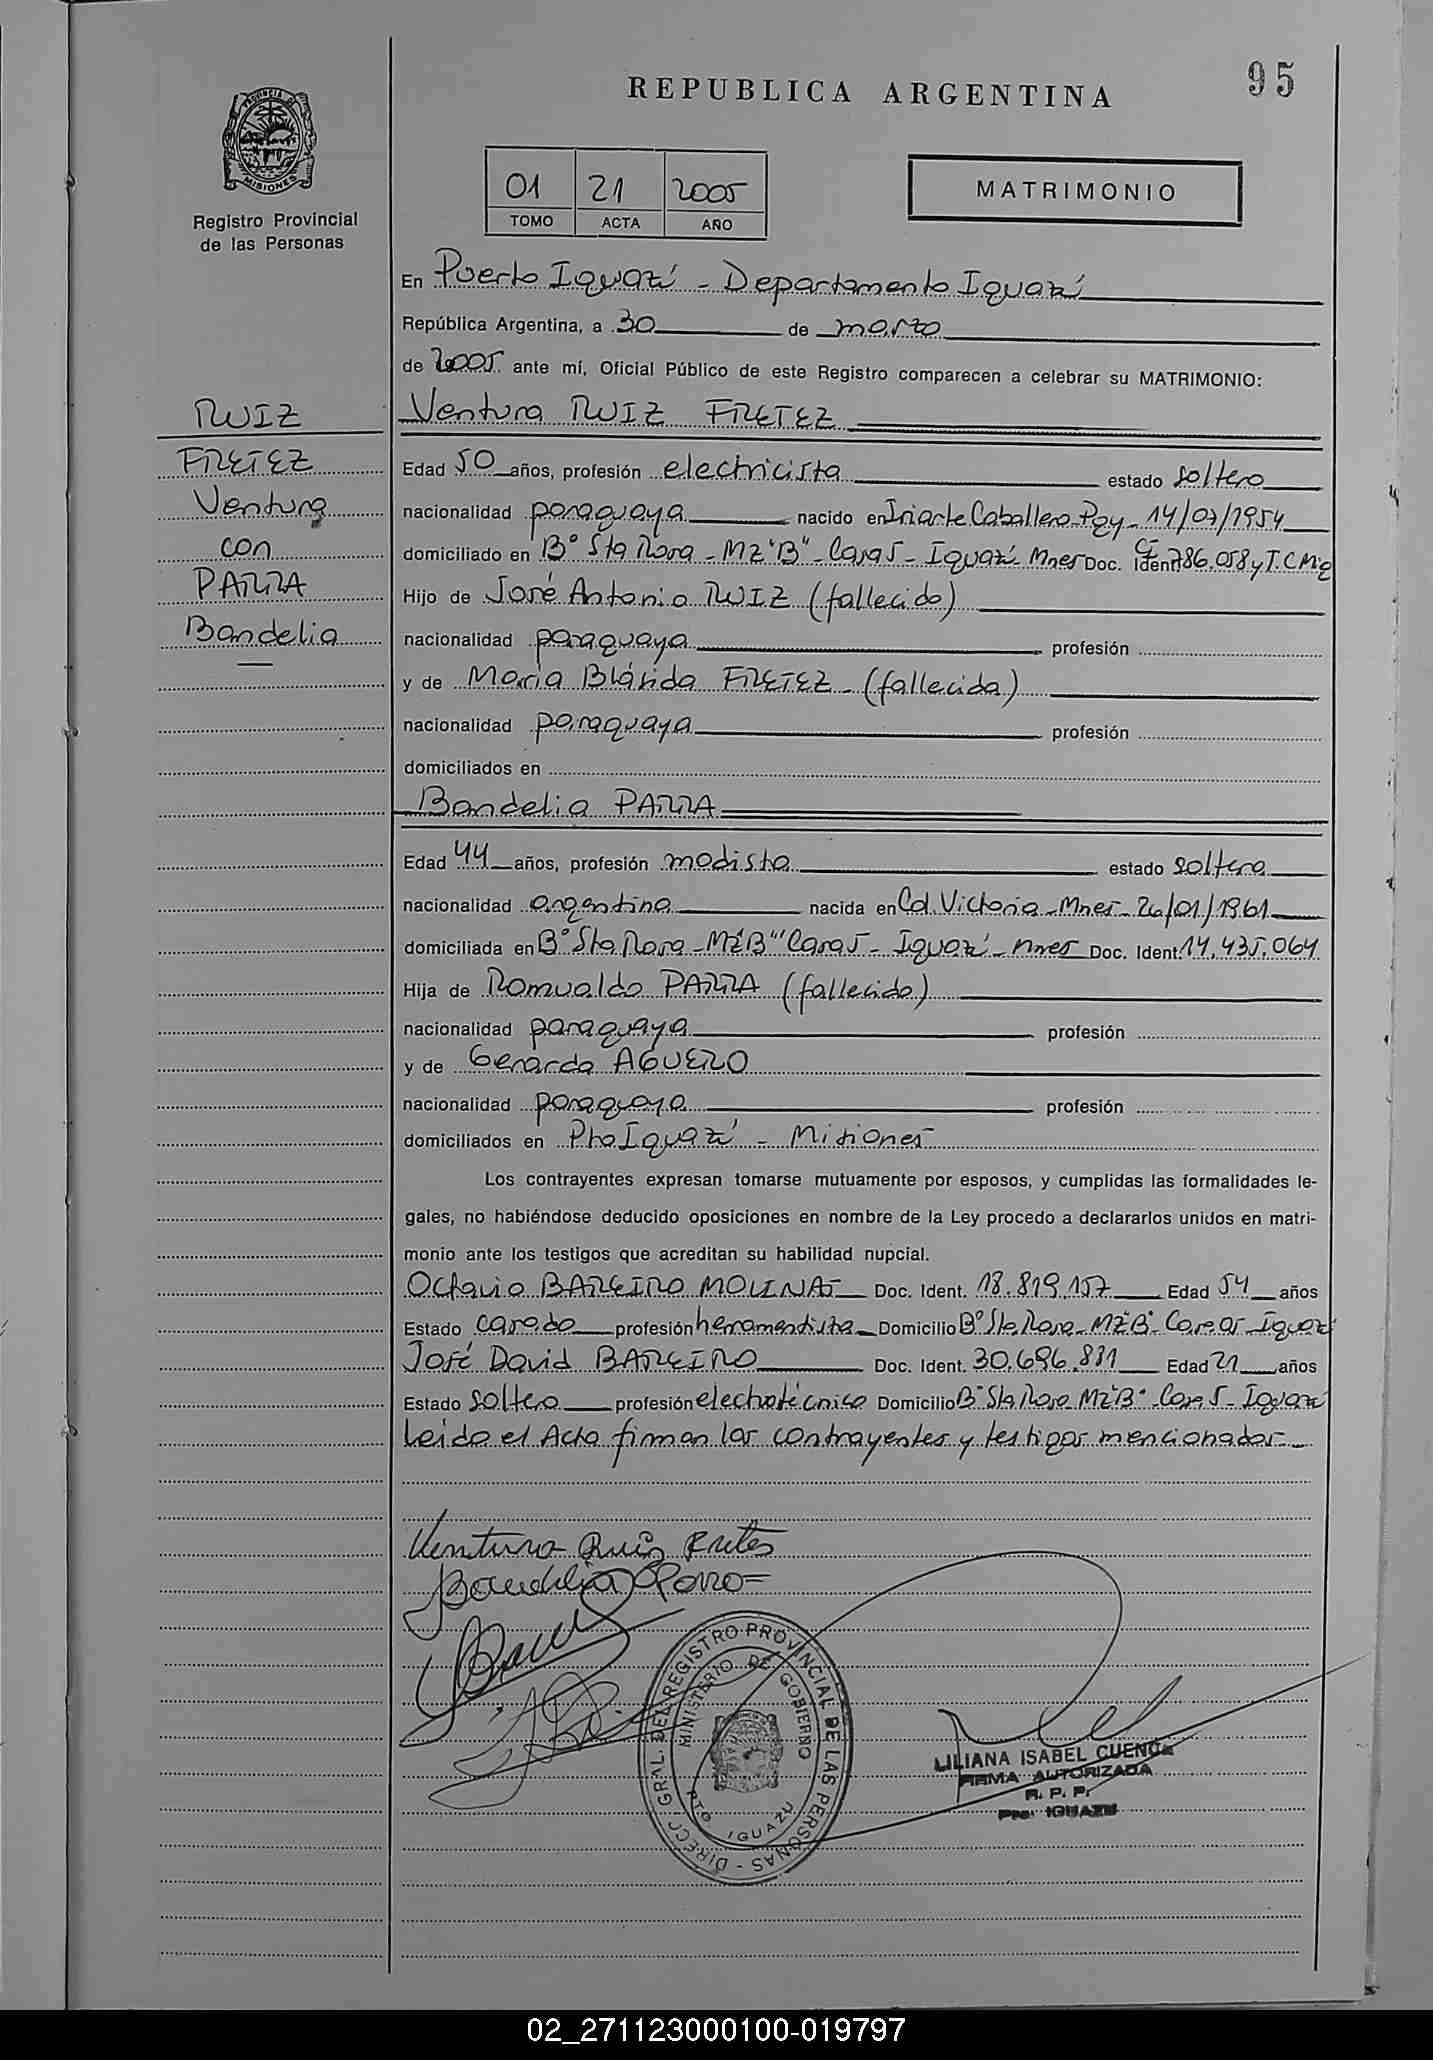 95
REPUBLICA ARGENTINA
PROVINCIA DE MISIONES
Registro Provincial
de las Personas
01 21 2005
TOMO ACTA AÑO
MATRIMONIO
En Puerto Iguazú - Departamento Iguazú
República Argentina, a 30 de marzo
de 2005 ante mí, Oficial Público de este Registro comparecen a celebrar su MATRIMONIO:
RUIZ
FRETEZ
Ventura
con
PARRA
Bandelia
Ventura RUIZ FRETEZ
Edad 50 años, profesión electricista estado soltero
nacionalidad paraguaya nacido en Iriarte Caballero-Pgy- 14/07/1954
domiciliado en B° Sta Rosa - MZ "B" - Casa 5 - Iguazú Mnes Doc. Ident. 786.058 y T.C.Mig
Hijo de José Antonio RUIZ (fallecido)
nacionalidad paraguaya profesión
y de María Blásida FRETEZ - (fallecida)
nacionalidad paraguaya profesión
domiciliados en
Bandelia PARRA
Edad 44 años, profesión modista estado soltera
nacionalidad argentina nacida en Cd. Victoria - Mnes - 26/01/1961
domiciliada en B° Sta Rosa - MZ "B" Casa 5 - Iguazú - Mnes Doc. Ident. 14.435.064
Hija de Romualdo PARRA (fallecido)
nacionalidad paraguaya profesión
y de Gerarda AGUERO
nacionalidad paraguaya profesión
domiciliados en Pto Iguazú - Misiones
Los contrayentes expresan tomarse mutuamente por esposos, y cumplidas las formalidades le-
gales, no habiéndose deducido oposiciones en nombre de la Ley procedo a declararlos unidos en matri-
monio ante los testigos que acreditan su habilidad nupcial.
Octavio BAREIRO MOLINAS Doc. Ident. 18.819.157 Edad 54 años
Estado casado profesión herramentista Domicilio B° Sta. Rosa - MZ "B" - Casa 05 - Iguazú
José David BAREIRO Doc. Ident. 30.696.831 Edad 21 años
Estado soltero profesión electrotécnico Domicilio B° Sta Rosa MZ "B" - Casa 5 - Iguazú
Leído el Acta firman los contrayentes y testigos mencionados.-
Ventura Ruiz Fretes
Bandelia Parra
DIRECC. GRAL. DEL REGISTRO PROVINCIAL DE LAS PERSONAS -
MINISTERIO DE GOBIERNO
PTO IGUAZU
LILIANA ISABEL CUENCA
FIRMA AUTORIZADA
R. P. P.
Pto. IGUAZU
02_271123000100-019797